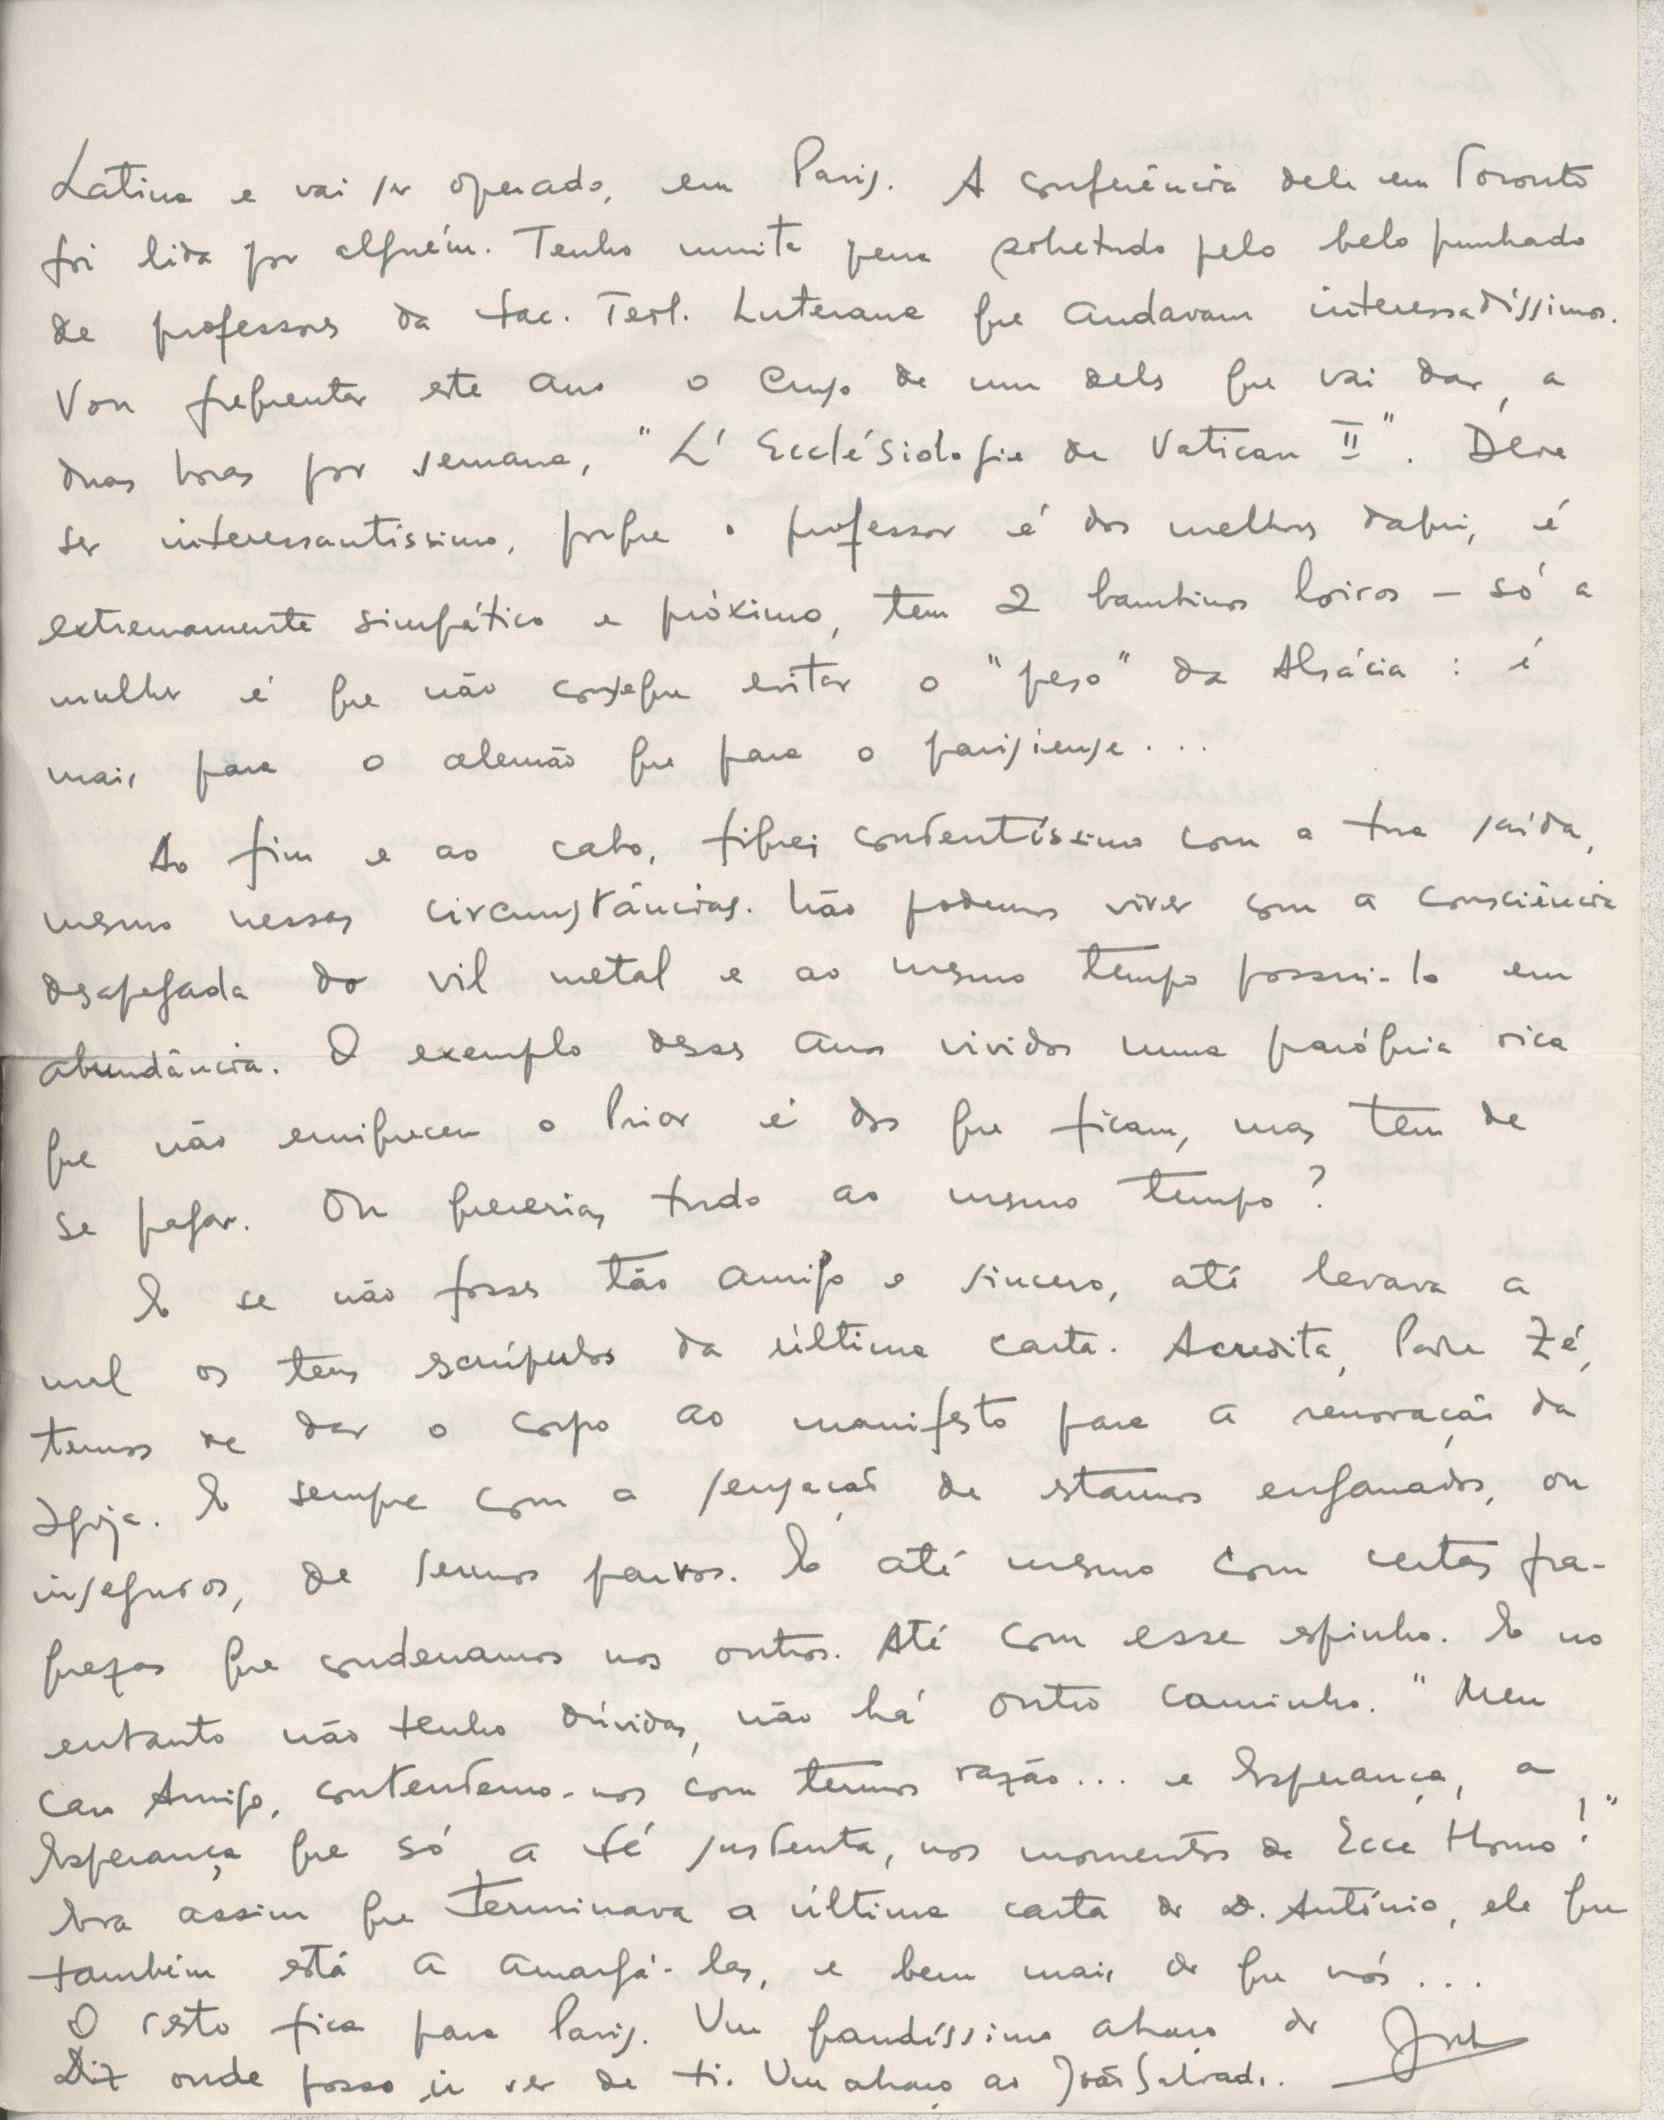 Latina e vai ser operado, em Paris. A conferência dele em Toronto
foi lida por alguém. Tenho muita pena sobretudo pelo belo punhado
de professores da Fac. Teol. Luterana que andavam interessadíssimos.
Vou frequentar este ano o curso de um deles que vai dar, a
duas horas por semana, "L'Ecclésiologie de Vatican II". Deve
ser interessantíssimo, porque o professor é dos melhores daqui, é
extremamente simpático e próximo, tem 2 bambinos loiros - só a
mulher é que não consegue evitar o "peso" da Alsácia : é
mais para o alemão que para o parisiense...
Ao fim e ao cabo, fiquei contentíssimo com a tua saída,
mesmo nessas circunstâncias. Não podemos viver com a consciência
desapegada do vil metal e ao mesmo tempo possui-lo em
abundância. O exemplo desses anos vividos numa paróquia rica
que não enriqueceu o Prior é dos que ficam, mas tem de
se pagar. Ou quererias tudo ao mesmo tempo?
E se não fosses tão amigo e sincero, até levava a
mal os teus escrúpulos da última carta. Acredita, Padre Zé,
temos de dar o corpo ao manifesto para a renovação da
Igreja. E sempre com a sensação de estarmos enganados, ou
inseguros, de sermos parvos. E até mesmo com certas fra-
quezas que condenamos nos outros. Até com esse espinho. E no
entanto não tenho dúvidas, não há outro caminho. "Meu
caro Amigo, contentemo-nos com termos razão... e Esperança, a
Esperança que só a fé sustenta, nos momentos de Ecce Homo!"
Era assim que terminava a última carta do D. António, ele que
também está a amargá-las, e bem mais do que nós...
O resto fica para Paris. Um grandíssimo abraço do
Diz onde posso ir ver de ti. Um abraço ao João Salvad.